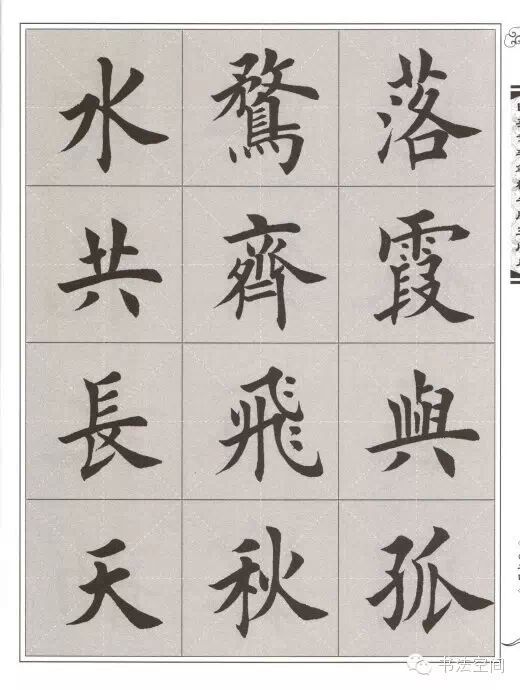 落霞與孤
鶩齊飛秋
水共長天
书法空间